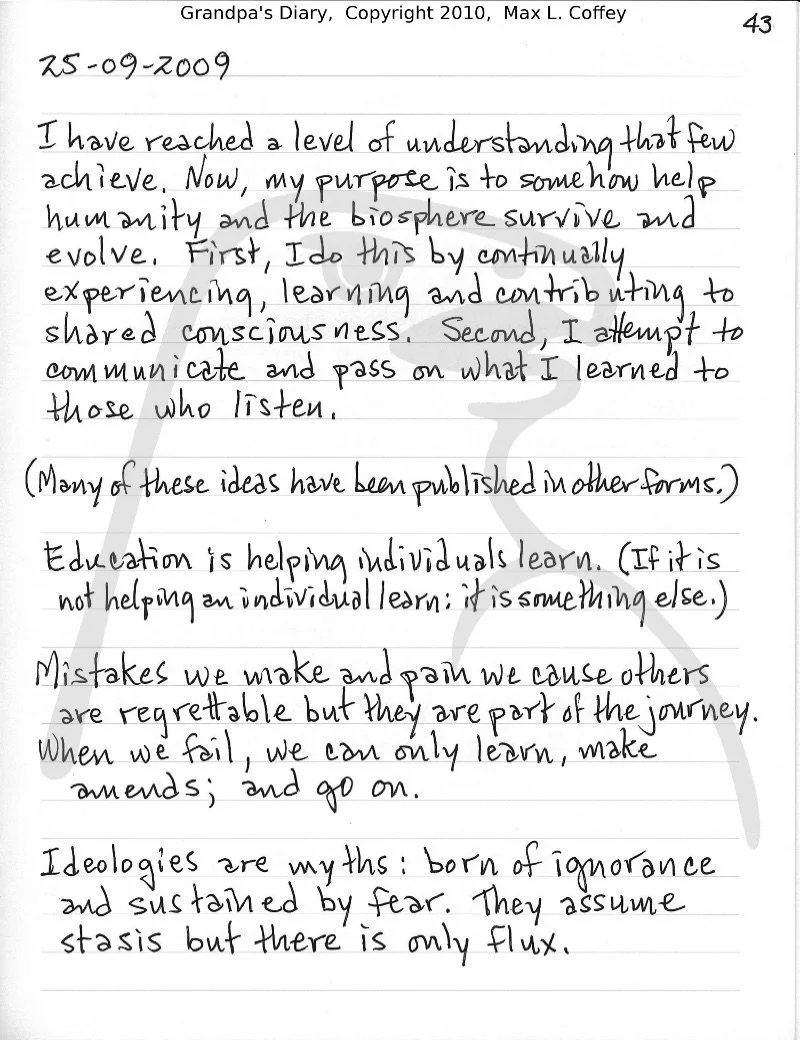 Grandpa's Diary, Copyright 2010, Max L. Coffey
43
25-09-2009
I have reached a level of understanding that few
achieve. Now, my purpose is to somehow help
humanity and the biosphere survive and
evolve. First, I do this by continually
experiencing, learning and contributing to
shared consciousness. Second, I attempt to
communicate and pass on what I learned to
those who listen.
(Many of these ideas have been published in other forms.)
Education is helping individuals learn. (If it is
not helping an individual learn: it is something else.)
Mistakes we make and pain we cause others
are regrettable but they are part of the journey.
When we fail, we can only learn, make
amends; and go on.
Ideologies are myths: born of ignorance
and sustained by fear. They assume
stasis but there is only flux.